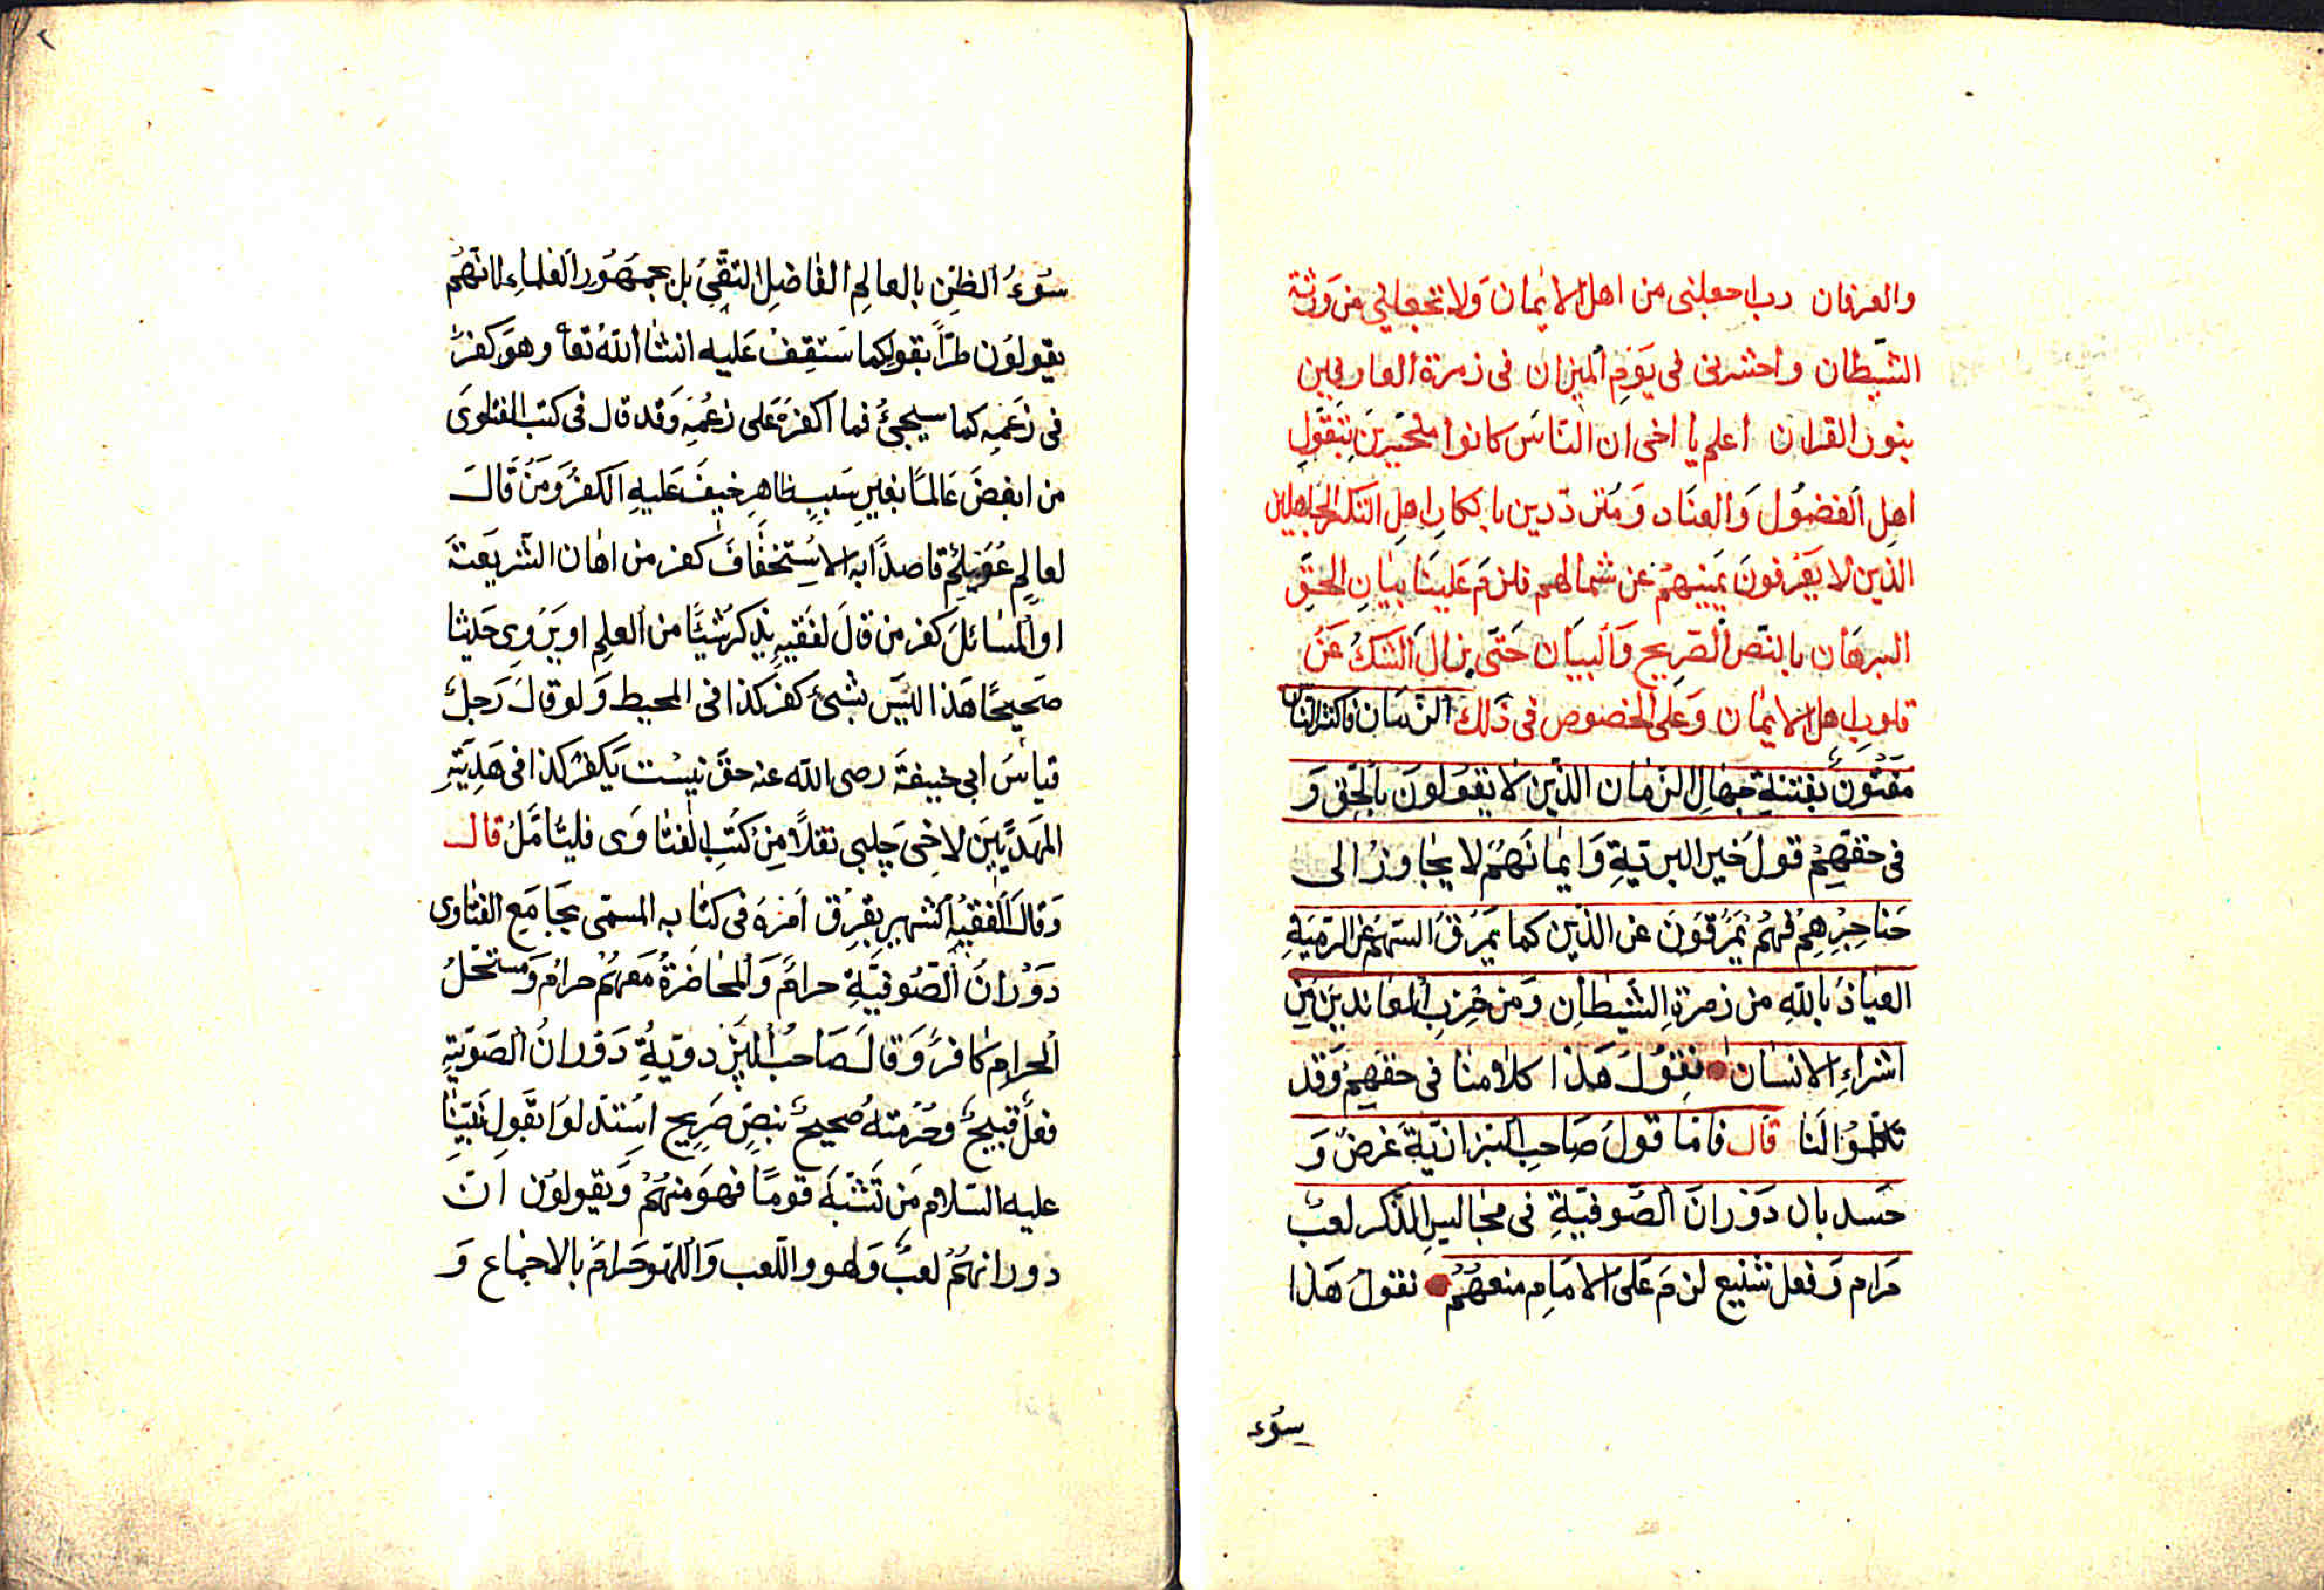 والعرفان رب اجعلنى من اهل الايمان وَلا تجعلنى من وَرثة
الشّيطان واحشرنى فى يَوْمِ الميزان فى زمرة العارفين
بنور القران اعلم يا اخى ان النّاسَ كانوا متحيّرينَ بتقوّلِ
اهلِ الفضُول وَالعنَاد وَمُتردّدين بانكارِ اهلِ التنكر الجاهلين
الذين لا يَعْرفونَ يَمينهمْ عن شمالهم فلزمَ عَلينَا بيَانِ الحقّ
البرهَان بالنّص الصّريح وَالبيَان حَتّى يزالَ الشكُ عَنْ
قلوب اهل الايمان وَعَلى الخصوص فى ذَلك الزّمان فاكثر الناس
مَفتُونٌ بفتنةِ جهَالِ الزمان الذّين لا يقولونَ بالحَق وَ
فى حقهِمْ قولُ خَير البريّةِ وَايمانهُمْ لا يجَاوزُ الى
حَناجِرِهِمْ فهُمْ يَمرُقونَ عن الدّين كما يَمرُقُ السّهمُ عن الرّميَةِ
العيَاذُ باللّهِ من زمرةِ الشّيطانِ وَمن حِزبِ المعاندينَ مِن
اشراءِ الانسَان نقولُ هَذا كلامنا فى حقهمْ وَقد
تكلّمُوا لَنا قال فامّا قولُ صَاحب البزازيّة غرضٌ وَ
حَسد بان دَوْرانَ الصّوفيّةِ فى مجَاليسِ الذّكر لعبٌ
حَرام وَفعل شنيع لزمَ عَلى الامَامِ منعهُمْ نقولُ هَذا
سُوء
سُوءُ الظنِ بالعالمِ الفاضلِ التقىّ بل بجمهُور العُلماءِ لانهُم
يقولوُن طرّاً بقوله كما سَتقِفُ عَليه انشا الله تعا وهوَ كفرٌ
فى زَعمِه كما سيجئُ فما اكفرهُ عَلى زعُمِه وَقد قال فى كتب الفتاوى
من ابغضَ عَالمًا بغيرِ سَببٍ ظاهرٍ خيفَ عَليهِ الكفرُ وَمَنْ قالَ
لعالمٍ عُوَيلمٌ قاصداً به الاستخفافَ كفر من اهان الشّريعَة
او المسَائلَ كفر من قالَ لفَقيهٍ يذكرُ شيئًا من العلمِ او يَرْوى حَديثا
صَحيحًا هَذا ليَس بشئٍ كفرَ كذا فى المحيط وَلو قالَ رَجلٌ
قياسَ ابى حنيفةَ رضى الله عنه حقّ نيسْت يَكفرُ كذا فى هَديّةِ
المهَديّينَ لاخى چلبى نقلاً مِن كُتبِ الفتاوى فليتأمّلْ قال
وَقالَ الفقيْهُ الشهير بقرقْ امْرَهْ فى كتابه المسمّى بجَامع الفتاوى
دَوْرانُ الصّوفيّةِ حرامٌ وَالمحَاضرةُ مَعهُمْ حرامٌ وَمستحلُّ
الحرامِ كافرٌ وَقالَ صَاحبُ البَزدويّةِ دَوْرانُ الصّوفيّةِ
فعلٌ قبيحٌ وحُرْمتهُ صحيحٌ بنصٍّ صَريح استدلوا بقَولِ نَبيّنا
عليه السّلام مَن تَشبّهَ قومًا فهوَ منهُمْ وَيقولوُن انّ
دورانهُمْ لعبٌ وَلهو واللّعب وَاللّهو حَرامٌ بالاجماع وَ